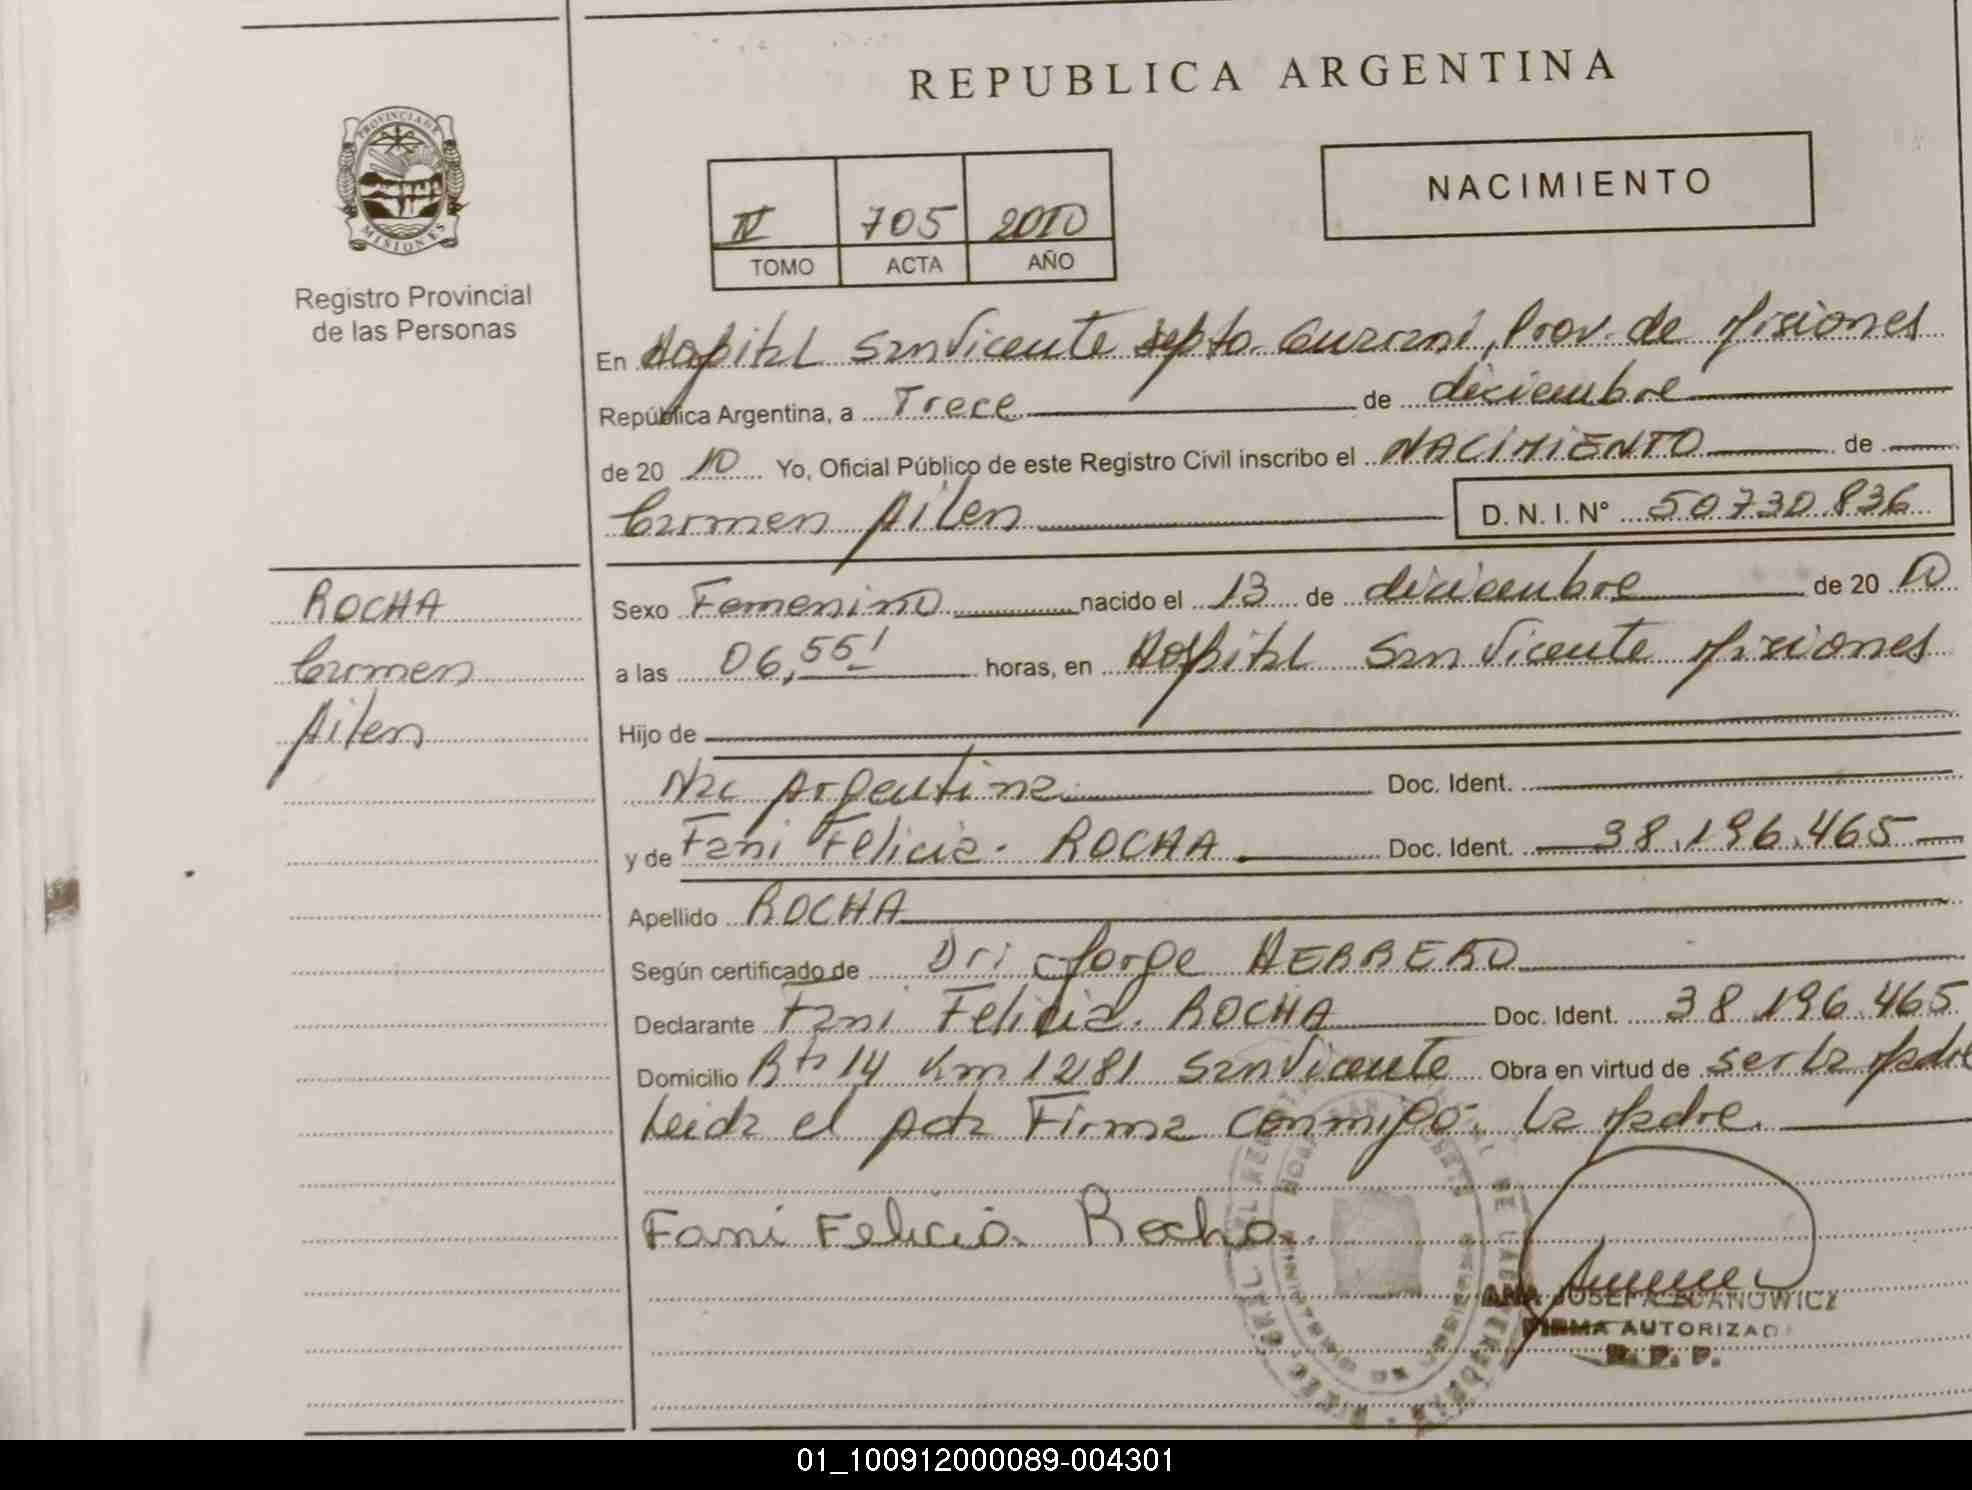 REPUBLICA ARGENTINA
PROVINCIA DE
MISIONES
Registro Provincial
de las Personas
IV 705 2010
TOMO ACTA AÑO
NACIMIENTO
En Hospital San Vicente Depto. Guarani, Prov. de Misiones
República Argentina, a Trece de diciembre
de 20 10 Yo, Oficial Público de este Registro Civil inscribo el NACIMIENTO de
Carmen Ailen D. N. I. N° 50730836
ROCHA
Carmen
Ailen
Sexo Femenino nacido el 13 de diciembre de 20 10
a las 06,55' horas, en Hospital San Vicente Misiones
Hijo de
Nac Argentina Doc. Ident.
y de Fani Felicia. ROCHA Doc. Ident. 38.196.465
Apellido ROCHA
Según certificado de Dr: Jorge HERRERO
Declarante Fani Felicia. ROCHA Doc. Ident. 38.196.465
Domicilio Rta 14 Km 1281 San Vicente Obra en virtud de ser la Madre
Leida el Acta Firma conmigo: La Madre.
Fani Felicia Rocha.
ANA JOSEFA
FIRMA AUTORIZADA
R. P. P.
01_100912000089-004301